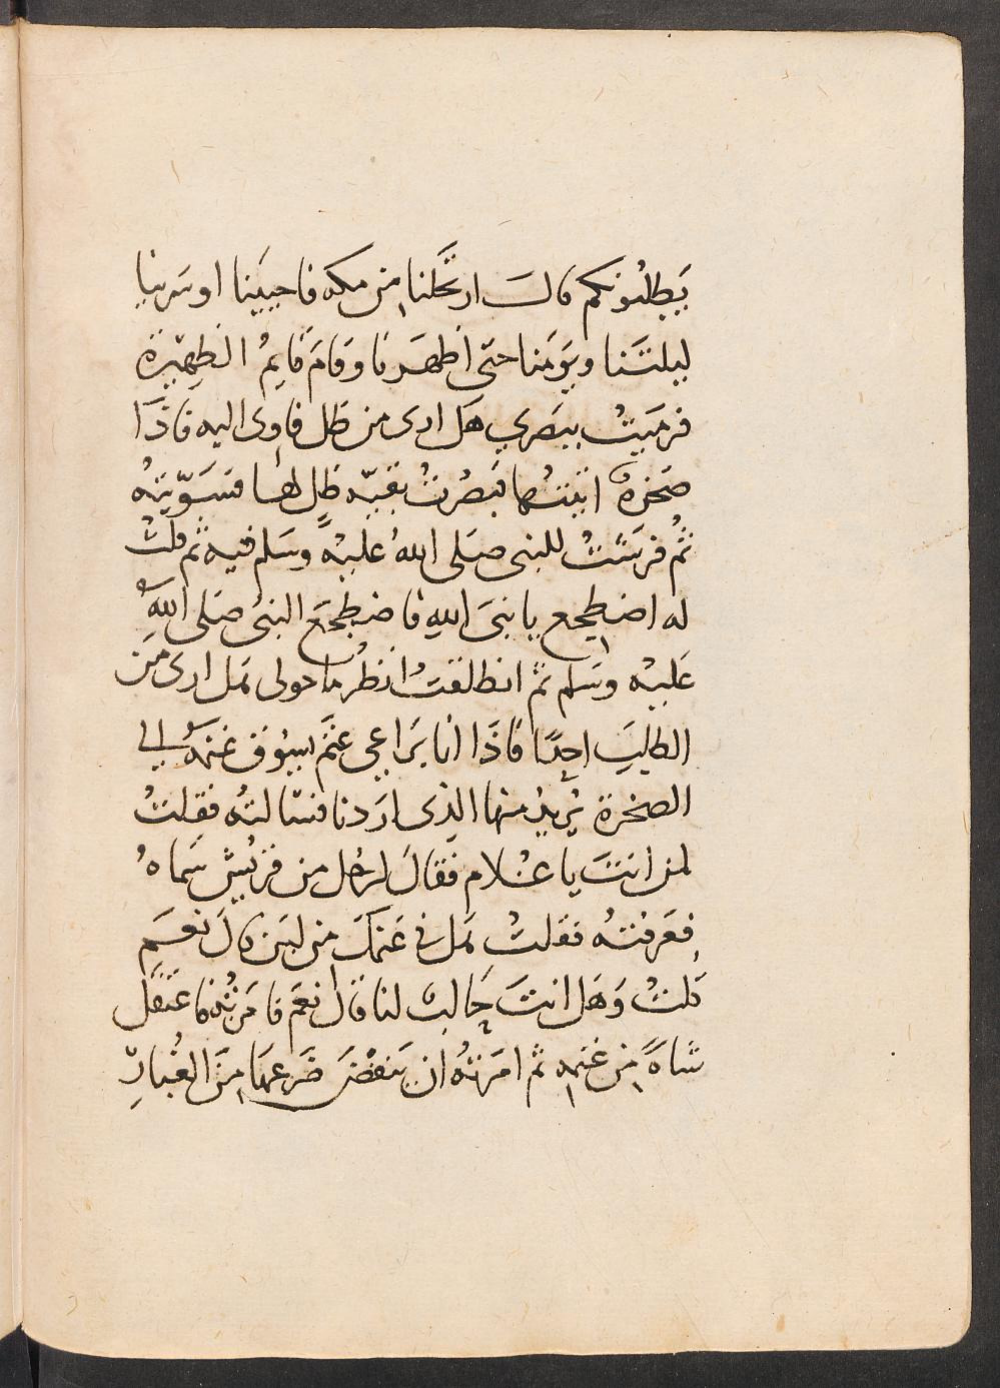 يَطلبُونكم قال ارتَحَلنا مِن مكه فاحيَينا او سَرينا
ليلتَنا ويَومَنا حتى اظهَرنا وقامَ قايمُ الظهِيرة
فرمَيتُ ببَصَري هَل ارى من ظل فاوى اليه فاذا
صَخرةٌ اتيتُها فبَصُرتُ بقيّه ظلٍ لها فسَوّيتهُ
ثُم فرَشتُ للنبى صلى اللهُ عليْه وسَلم فيه ثم قلتُ
له اضطجِع يا نبىَ اللهِ فاضطجَعَ النبىُ صَلى اللهُ
عَليْه وسَلم ثم انطلقتُ انظُر ما حولى هَل ارى مَن
الطلبِ احدًا فاذَا انا برَاعى غنَم يسُوق غنَمهُ الى
الصخرة يُريدُ منها الذى ارَدنا فسَالتُه فقلتُ
لمن انتَ يا غُلام فقالَ لرجُل من قريْش سَماهُ
فعَرفتُه فقلتُ هَل فى غنمكَ من لبَن قالَ نعَم
قلتُ وَهَل انتَ حَالبٌ لنا قال نعَم فامَرتُه فاعتَقَل
شاةً مِن غنَمِه ثم امَرتُه ان يَنفُضَ ضَرعهَا مِنَ الغُبارِ